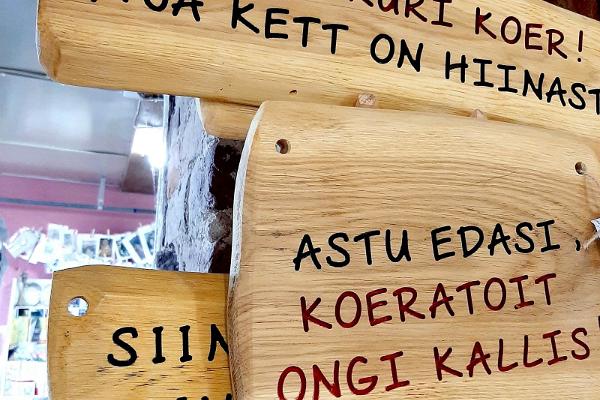 KURI KOER!
KETT ON HIINAST
ASTU EDASI,
KOERATOIT
ONGI KALLIS!